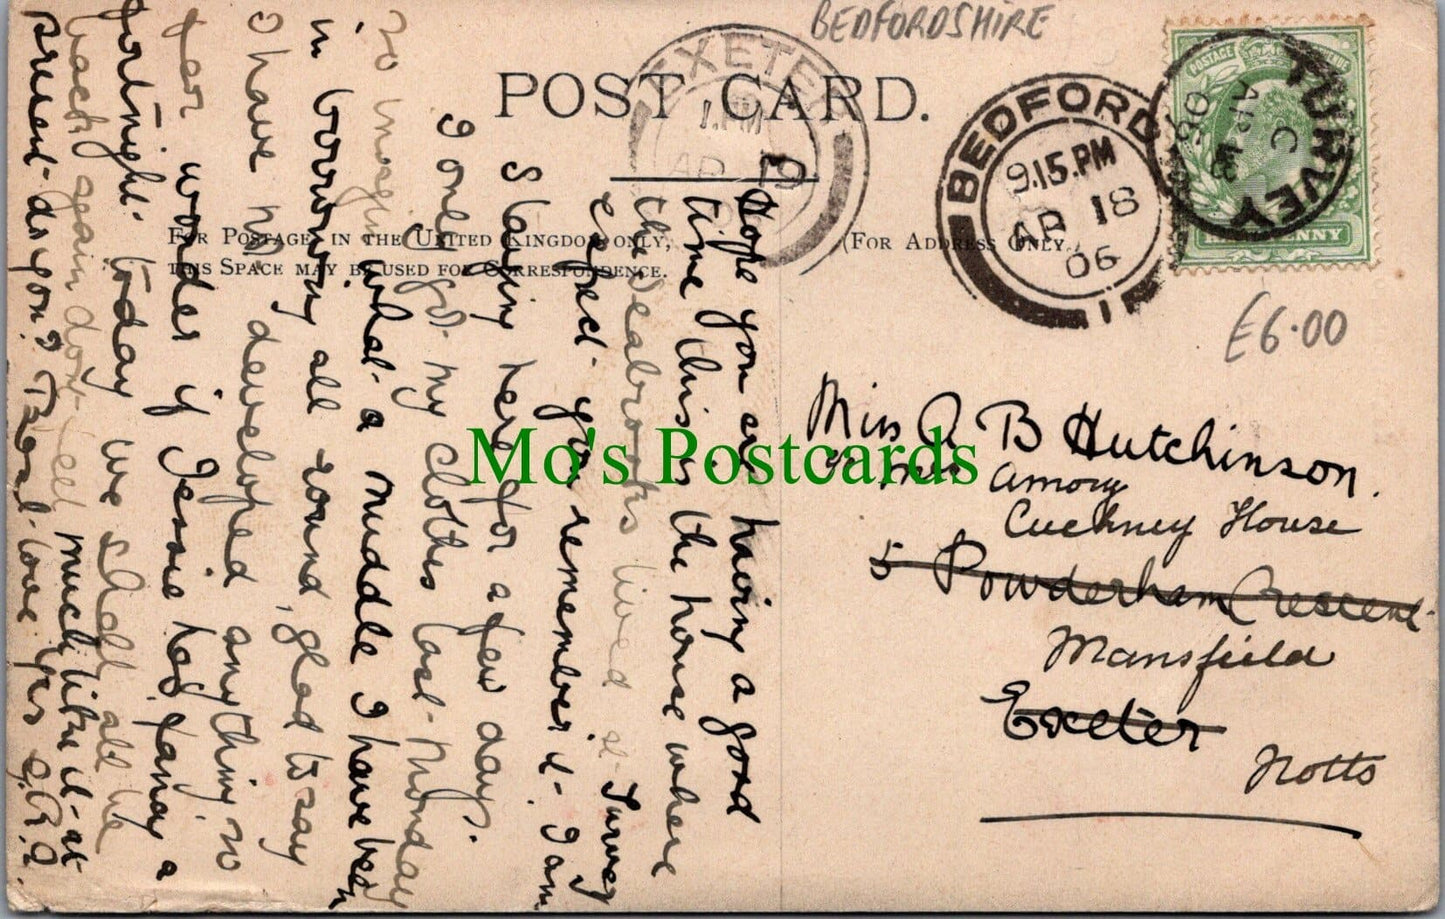 BEDFORDSHIRE
POST CARD.
EXETER
1. PM
AP 19
BEDFORD
9.15.PM
AP 18
06
TURVEY
C
AP 18
06
POSTAGE REVENUE
HALFPENNY
FOR POSTAGE IN THE UNITED KINGDOM ONLY,
THIS SPACE MAY BE USED FOR CORRESPONDENCE.
(FOR ADDRESS ONLY
£6.00
Miss A B Hutchinson.
c/o Mrs Amory
Cuckney House
5 Powderham Crescent
Mansfield
Exeter
Notts
Hope you are having a good
time this is the house where
the Seabrooks lived at Turvey
expect you remember it. I am
staying here for a few days.
I only got my clothes last Monday
so imagine what a muddle I have been
in borrowing all round, glad to say
I have not developed anything so
far wonder if Jessie has fancy a
fortnight today we shall all be
back again don't feel much like it at
present do you? Best love yrs
Mo's Postcards